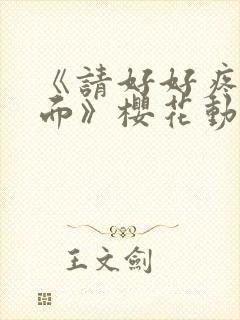 《請好好疼
而》櫻花動
王文劍